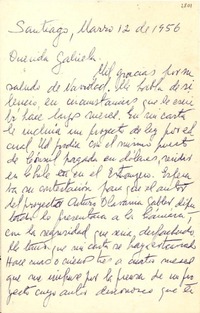 Santiago, Marzo 12 de 1956
Querida Gabriela:
Mil gracias por su
saludo de Navidad. Me habla de si
lencio, en circunstancias que le envié
hace largos meses. En mi carta
le incluía un proyecto de ley por el
cual Ud podría con el mismo puesto
de Cónsul pagada en dólares, residir
en Chile o en el Extranjero. Espera
ba su contestación para que el autor
del proyecto Arturo Olavarría Gabler dipu
tado lo presentara a la Cámara,
con la seguridad que sería despachado
que mi carta se haya extraviado.
Hace más o menos tres a cuatro meses
que me impuse por la prensa de un pro
yecto cuyo autor desconozco que